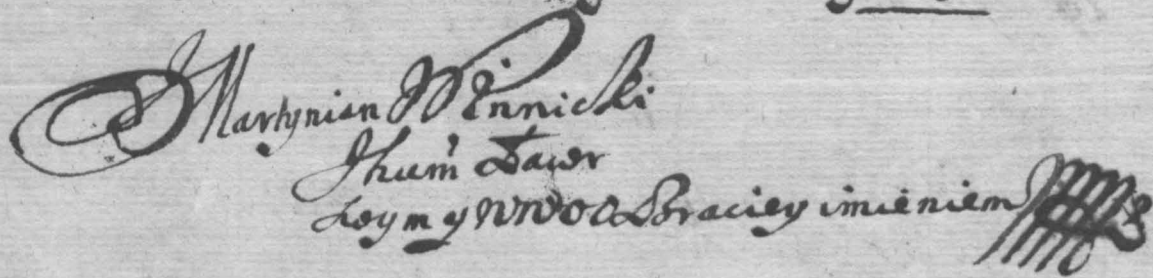 Martynian Winnicki
Jhum̃ Ław̃r
swym y WWOO Braciey imieniem